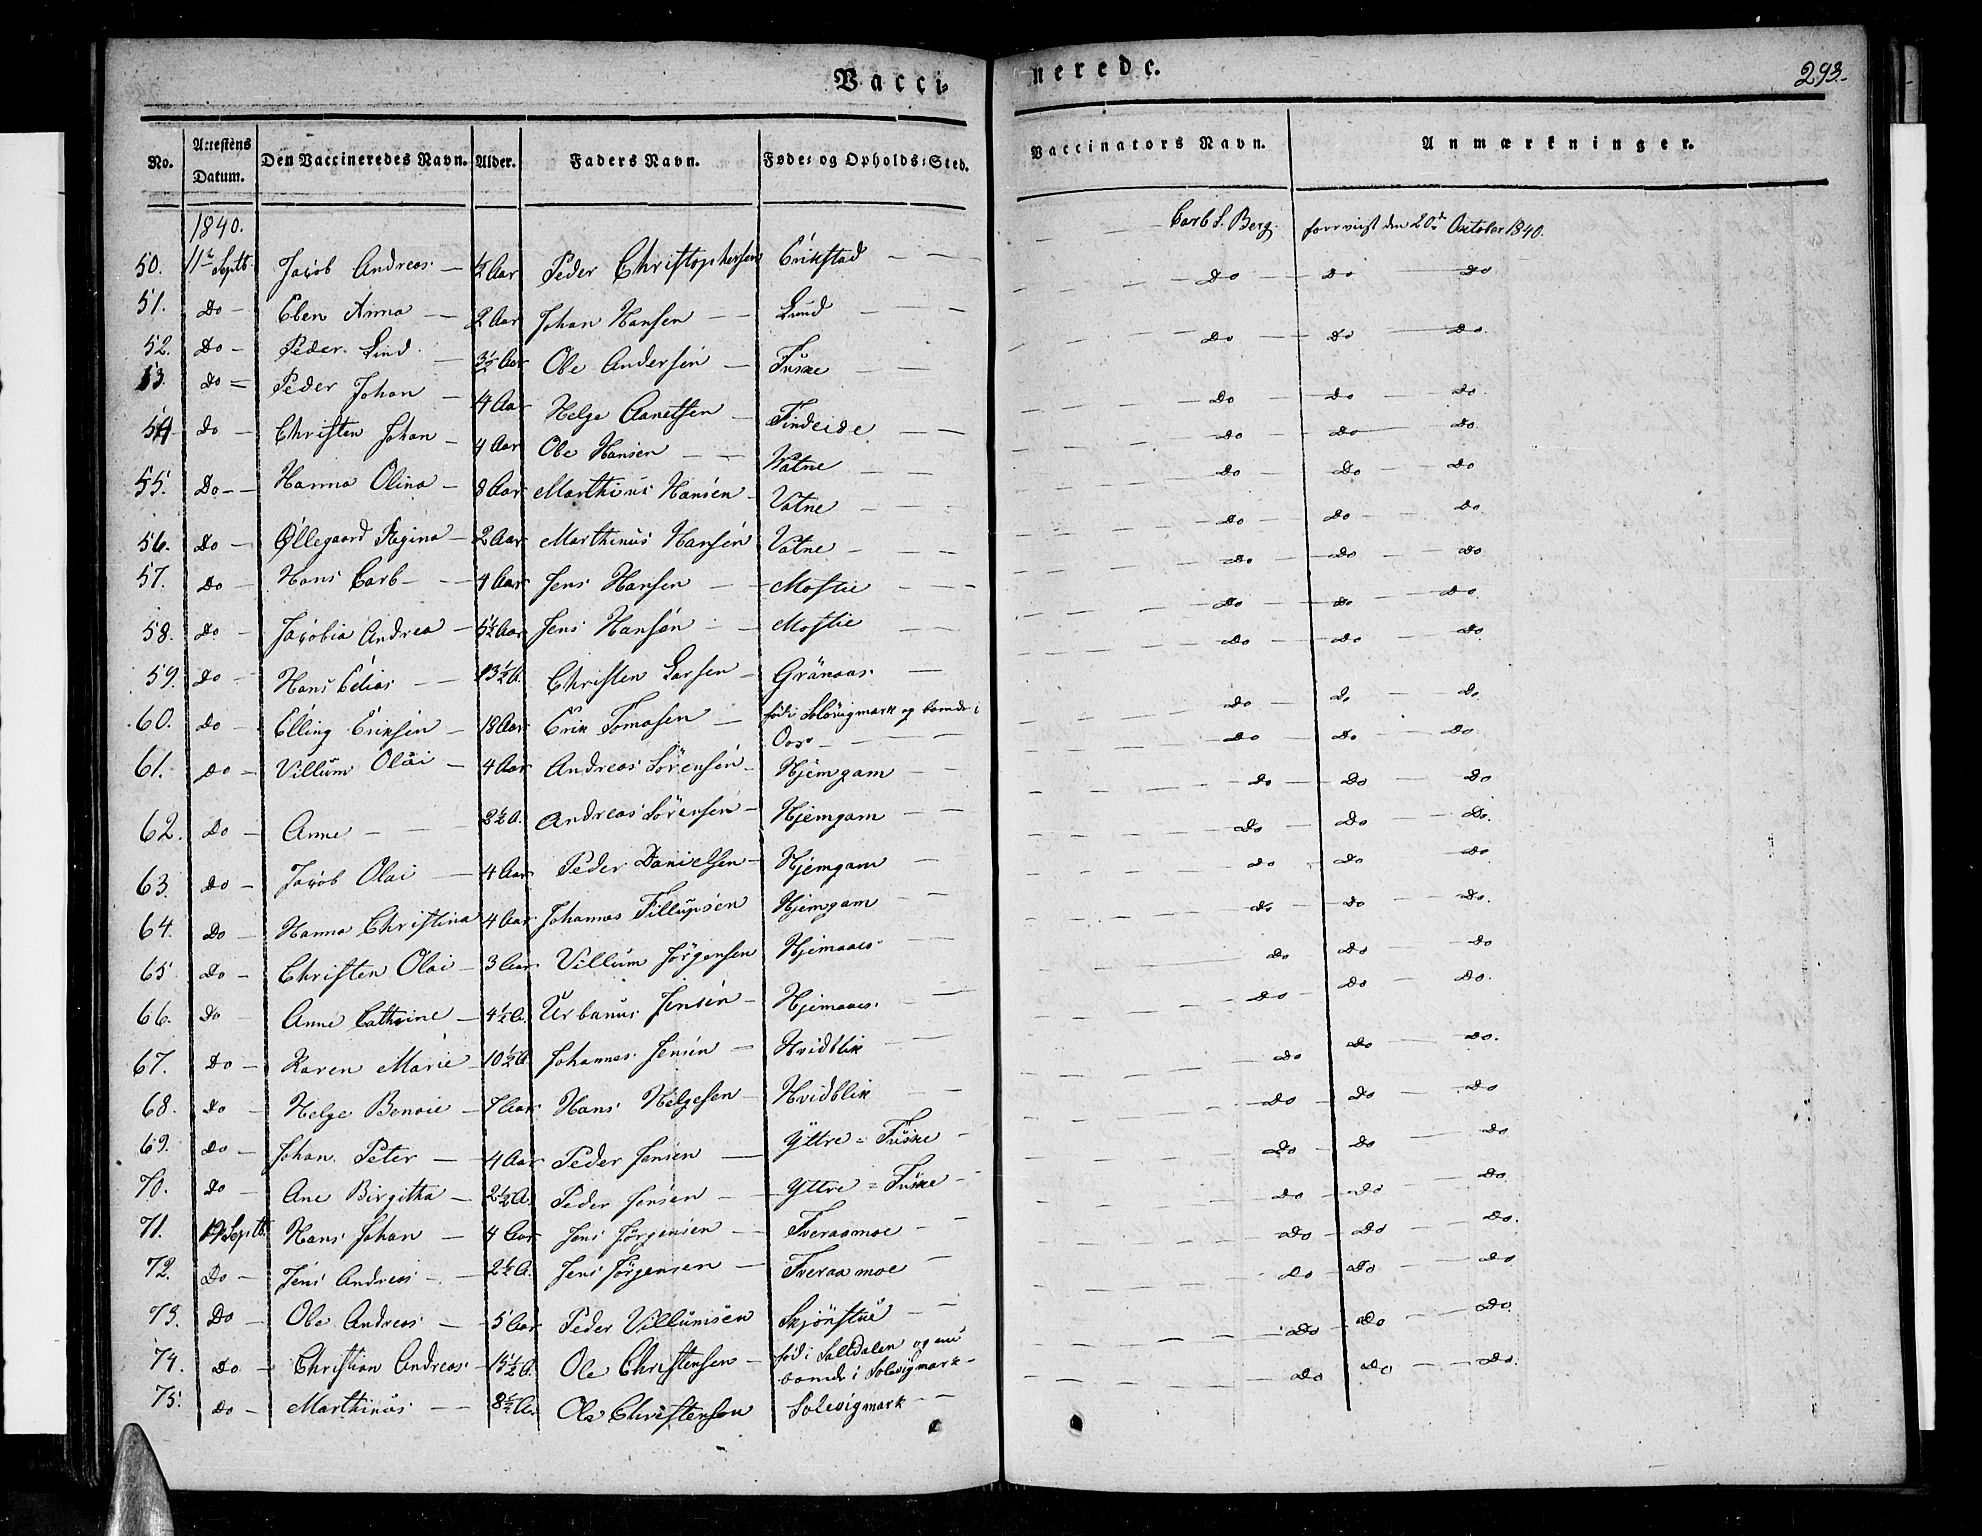 Vacci-
nerede.
293.
No. Attestens Datum. Den Vaccineredes Navn. Alder. Faders Navn. Føde- og Opholds-Sted. Vaccinators Navn. Anmærkninger.
1840.
50. 11te Septb. Jacob Andreas — ½ Aar Peder Christophersen Erikstad — — Carl L. Berg. forevist den 20de October 1840.
51. Do — Elen Anna — 2 Aar Johan Hansen — Lund — — Do — Do — Do
52. Do — Peder Lind — 3½ Aar Ole Andersen — Fuske — — Do — Do — Do.
53. Do = Peder Johan — 4 Aar Helge Aanetsen — Findeide — — Do — Do — Do.
54 Do — Christen Johan — 4 Aar Ole Hansen — — Vatne — — Do — Do — Do
55. Do — — Hanna Olina — 8 Aar Marthinus Hansen — Vatne — — Do — Do — Do
56. Do — Øllegaard Regina — 2 Aar Marthinus Hansen Vatne — — Do — Do — Do
57. Do — Hans Carl — — 4 Aar Jens Hansen — Mostie — — Do — Do — Do
58. Do — Jacobia Andrea — 5½ Aar Jens Hansen — Mostie — — Do — Do — Do
59. Do — Hans Elias — — 13½ A. Christen Larsen — Grånaas — Do — Do — Do
60. Do — Elling Eriksen — 18 Aar Erik Tomasen — fød i Solvigmark og boende i — Do — Do — Do
Oos — —
61. Do — Villum Olai — 4 Aar Andreas Sörensen — Hjemgam — — Do — Do — Do
62. Do — Anne — — 2½ A. Andreas Sörensen — Hjemgam — Do — Do — Do
63. Do — Jacob Olai — 4 Aar Peder Danielsen — Hjemgam — Do — Do — Do.
64. Do — Hanna Christina 4 Aar Johannes Fillupsen Hjemgam — Do — Do — Do
65 Do — Christen Olai — 3 Aar Villum Jörgensen Hjemaaes — Do — Do — Do.
66. Do — Anne Cathrine — 4½ A. Urbanus Jensen — Hjemaaes. — Do — Do — Do
67. Do — Karen Marie — 10½ A Johannes Jensen — Hvidblik — Do — Do — Do.
68. Do — Helge Benoie — 7 Aar Hans Helgesen — Hvidblik — Do — Do — Do.
69. Do — Johan Peter — 4 Aar Peder Jensen — Yttre = Fuske — Do — Do — Do
70. Do — Ane Birgitha — 2½ A. Peder Jensen — Yttre = Fuske — Do — Do — Do
71. 19 Septb. Hans Johan — 4 Aar Jens Jörgensen — Tveraamoe — Do — Do — Do
72. Do — Jens Andreas — 2½ A. Jens Jörgensen — Tveraamoe — Do — Do — Do.
73. Do — Ole Andreas — 5 Aar Peder Villumsen Skjönstue — — Do — Do — Do
74. Do — Christian Andreas — 15½ A. Ole Christensen — fød i Saltdalen og nu — Do — Do — Do.
boende i Solvigmark —
75. Do — Marthinus — — 8½ Aar Ole Christensen Solevigmark — — Do Do Do.